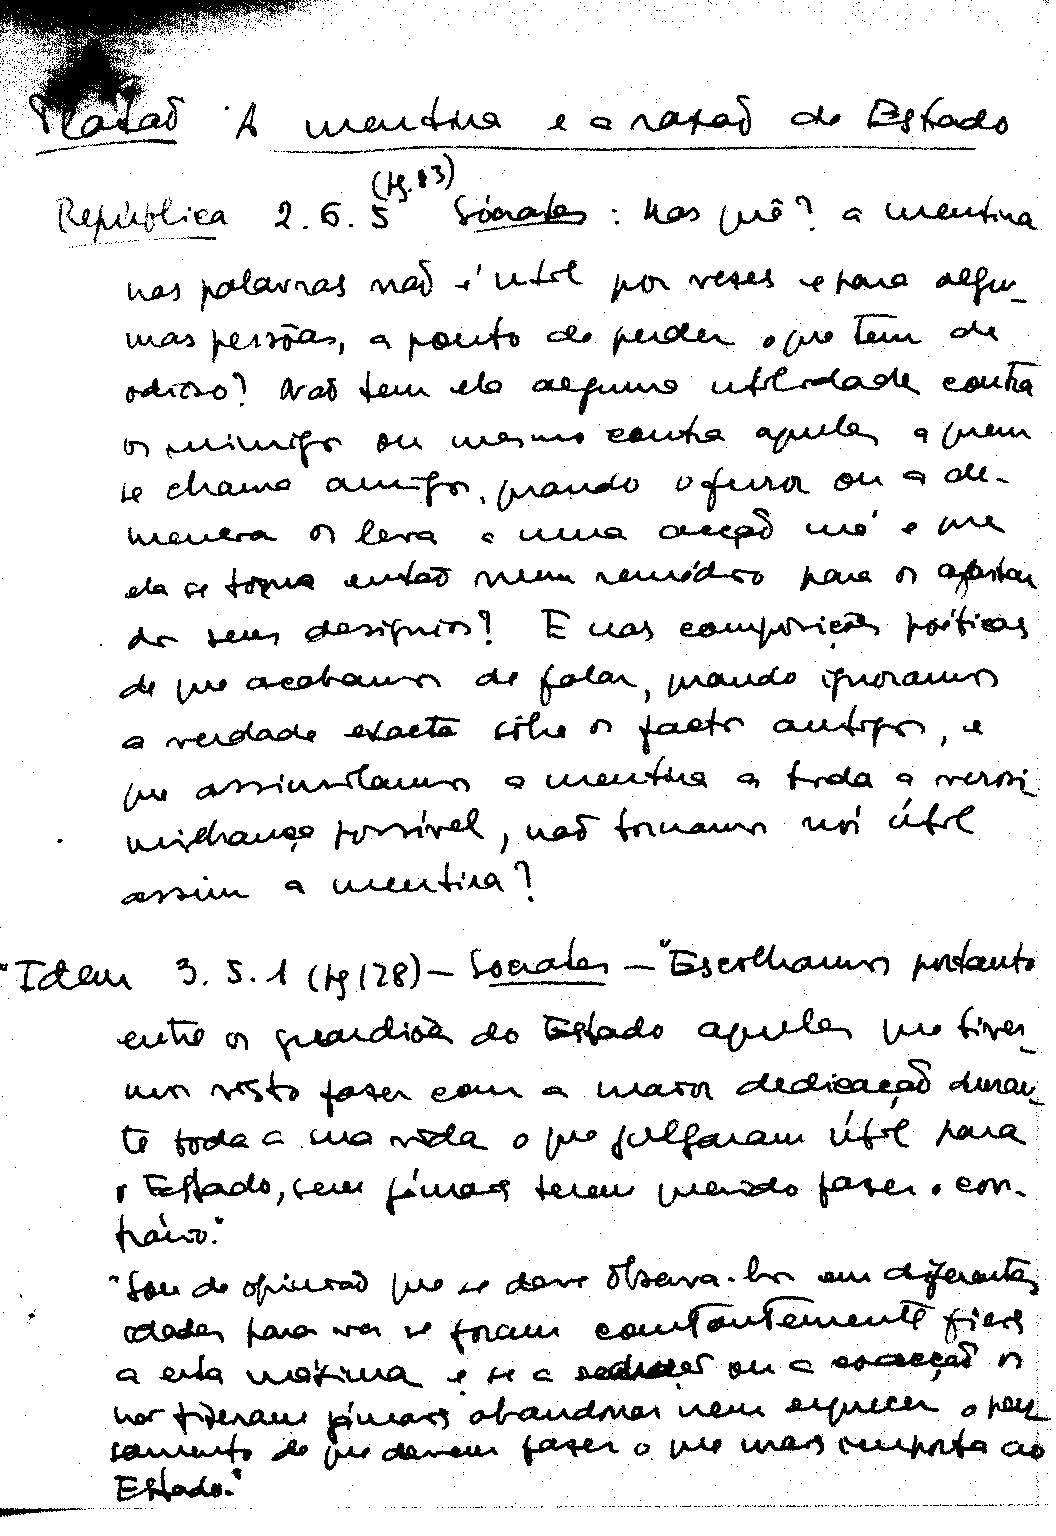 Platão A mentira e a razão de Estado
(pg. 83)
República 2.6.5 Sócrates: Mas quê? a mentira
nas palavras não é útil por vezes e para algu-
mas pessoas, a ponto de perder o que tem de
odioso? Não tem ela alguma utilidade contra
os inimigos ou mesmo contra aqueles a quem
se chama amigos, quando o furor ou a de-
mencia os leva a uma acção má e que
ela se torna então num remédio para os afastar
dos seus desígnios? E nas composições poéticas
de que acabamos de falar, quando ignoramos
a verdade exacta sobre os factos antigos, e
que assimilamos a mentira a toda a verosi-
milhança possível, não tornamos nós útil
assim a mentira?
"Idem 3.5.1 (pg 128) – Socrates – "Escolhamos portanto
entre os guardiões do Estado aqueles que tiver-
mos visto fazer com a maior dedicação duran-
te toda a sua vida o que julgaram útil para
o Estado, sem jámais terem querido fazer o con-
trário."
"Sou de opinião que se deve observa-los em diferentes
idades para ver se foram constantemente fieis
a esta máxima e se a sedução ou a coacção os
não fizeram jámais abandonar nem esquecer o pen-
samento de que devem fazer o que mais importa ao
Estado."